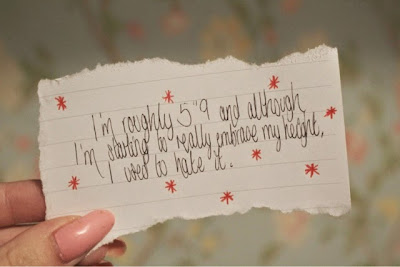 I'm roughly 5"9 and although
I'm starting to really embrace my height,
I used to hate it.